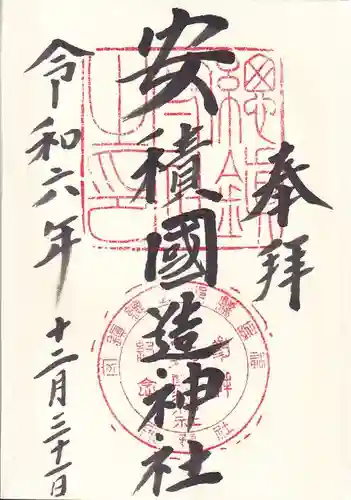 奉拝
安積國造神社
令和六年
十二月三十一日